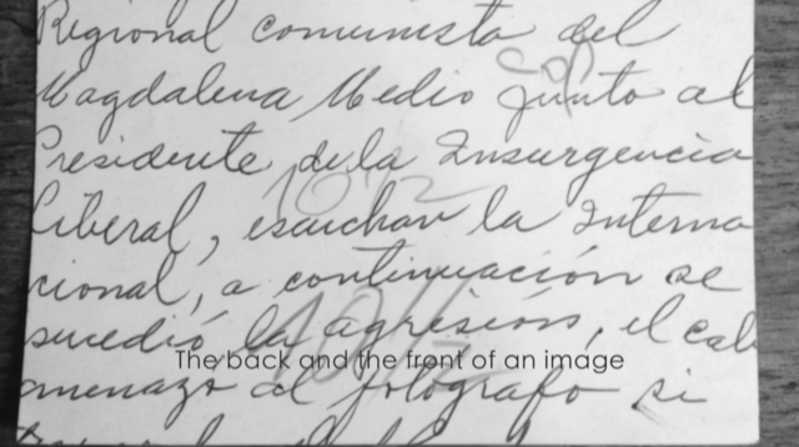 Regional comunista del
Magdalena Medio junto al
Presidente de la Insurgencia
Liberal, escuchan la Interna
cional, a continuación se
sucedió la agresión, el cab
The back and the front of an image
amenazó al fotógrafo si